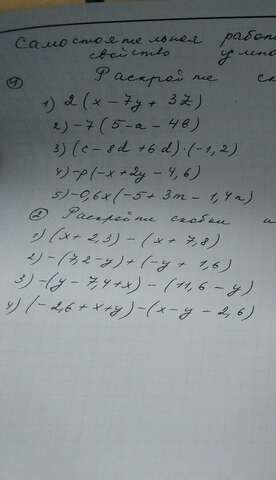 Самостоятельная работ
свойство умно
① Раскройте ск
1) 2(x - 7y + 3z)
2) -7(5 - a - 4b)
3) (c - 8d + 6d)·(-1,2)
4) -p(-x + 2y - 4,6)
5) -0,6x(-5 + 3m - 1,4n)
② Раскройте скобки и
1) (x + 2,3) - (x + 7,8)
2) -(7,2 - y) + (-y + 1,6)
3) -(y - 7,4 + x) - (11,6 - y)
4) (-2,6 + x + y) - (x - y - 2,6)